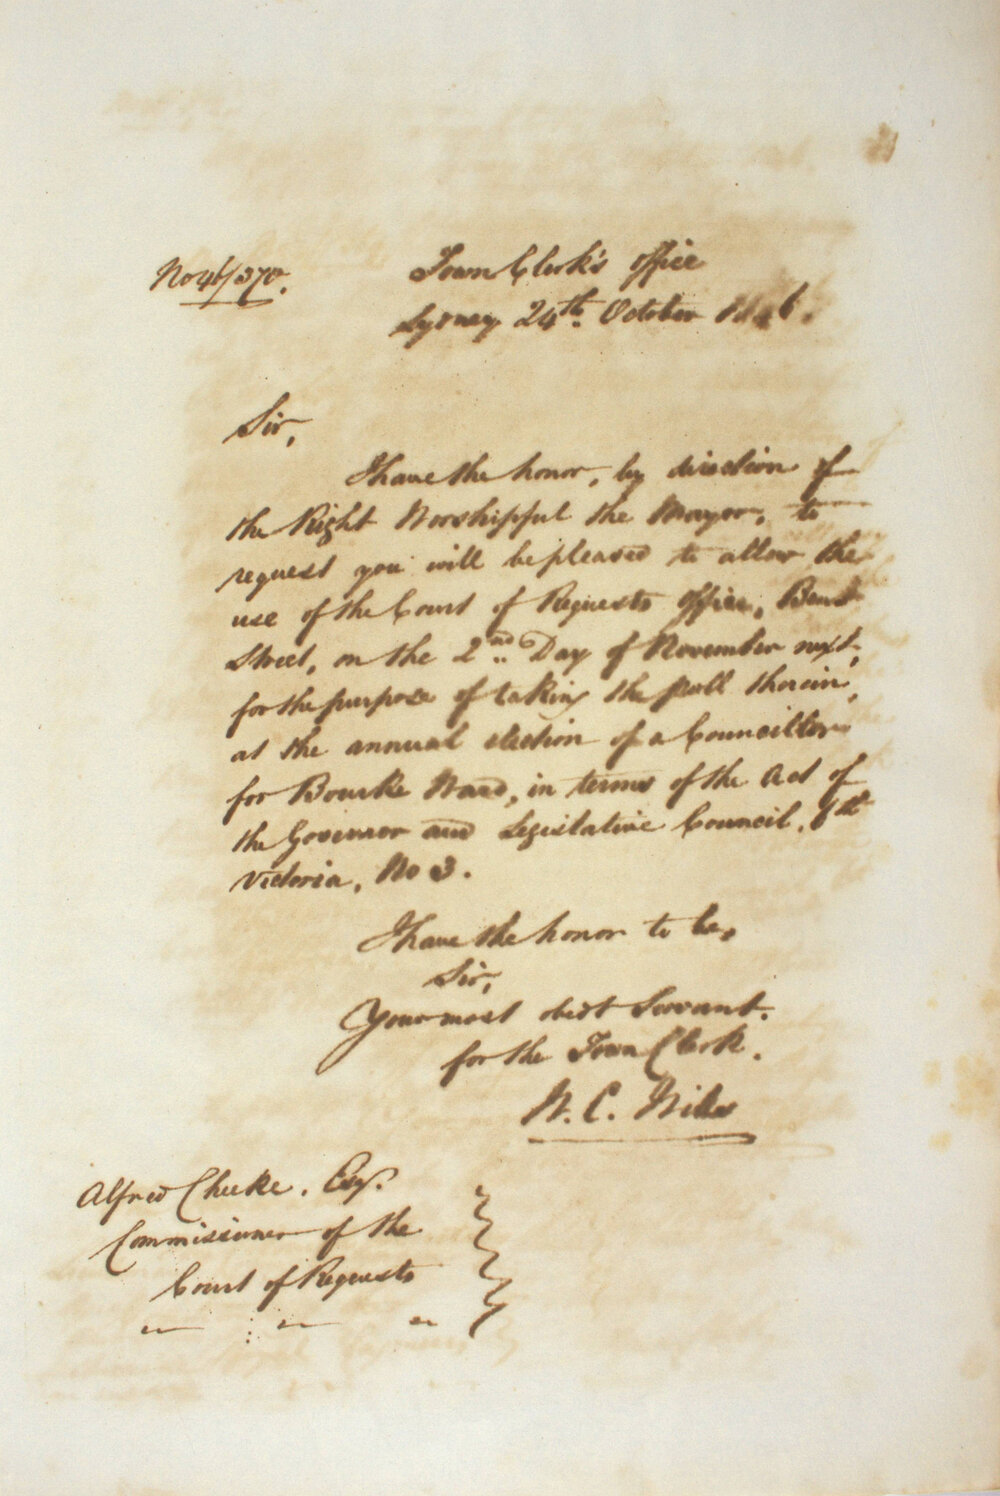 No 46/370.
Town Clerk's Office
Sydney 24th. October 1846.
Sir,
I have the honor, by direction of
the Right Worshipful the Mayor, to
request you will be pleased to allow the
use of the Court of Requests Office, Bent
Street, on the 2nd Day of November next,
for the purpose of taking the poll therein,
at the annual election of a Councillor
for Bourke Ward, in terms of the Act of
the Governor and Legislative Council, 6th
Victoria, No 3.
I have the honor to be,
Sir,
Your most obedt Servant.
for the Town Clerk.
W. C.
Alfred Cheeke. Esqr.
Commissioner of the
Court of Requests